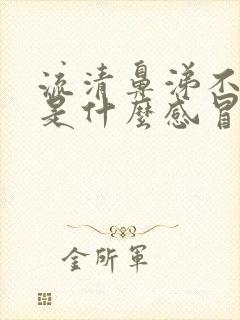 流清鼻涕不
是什麼感冒
金所軍